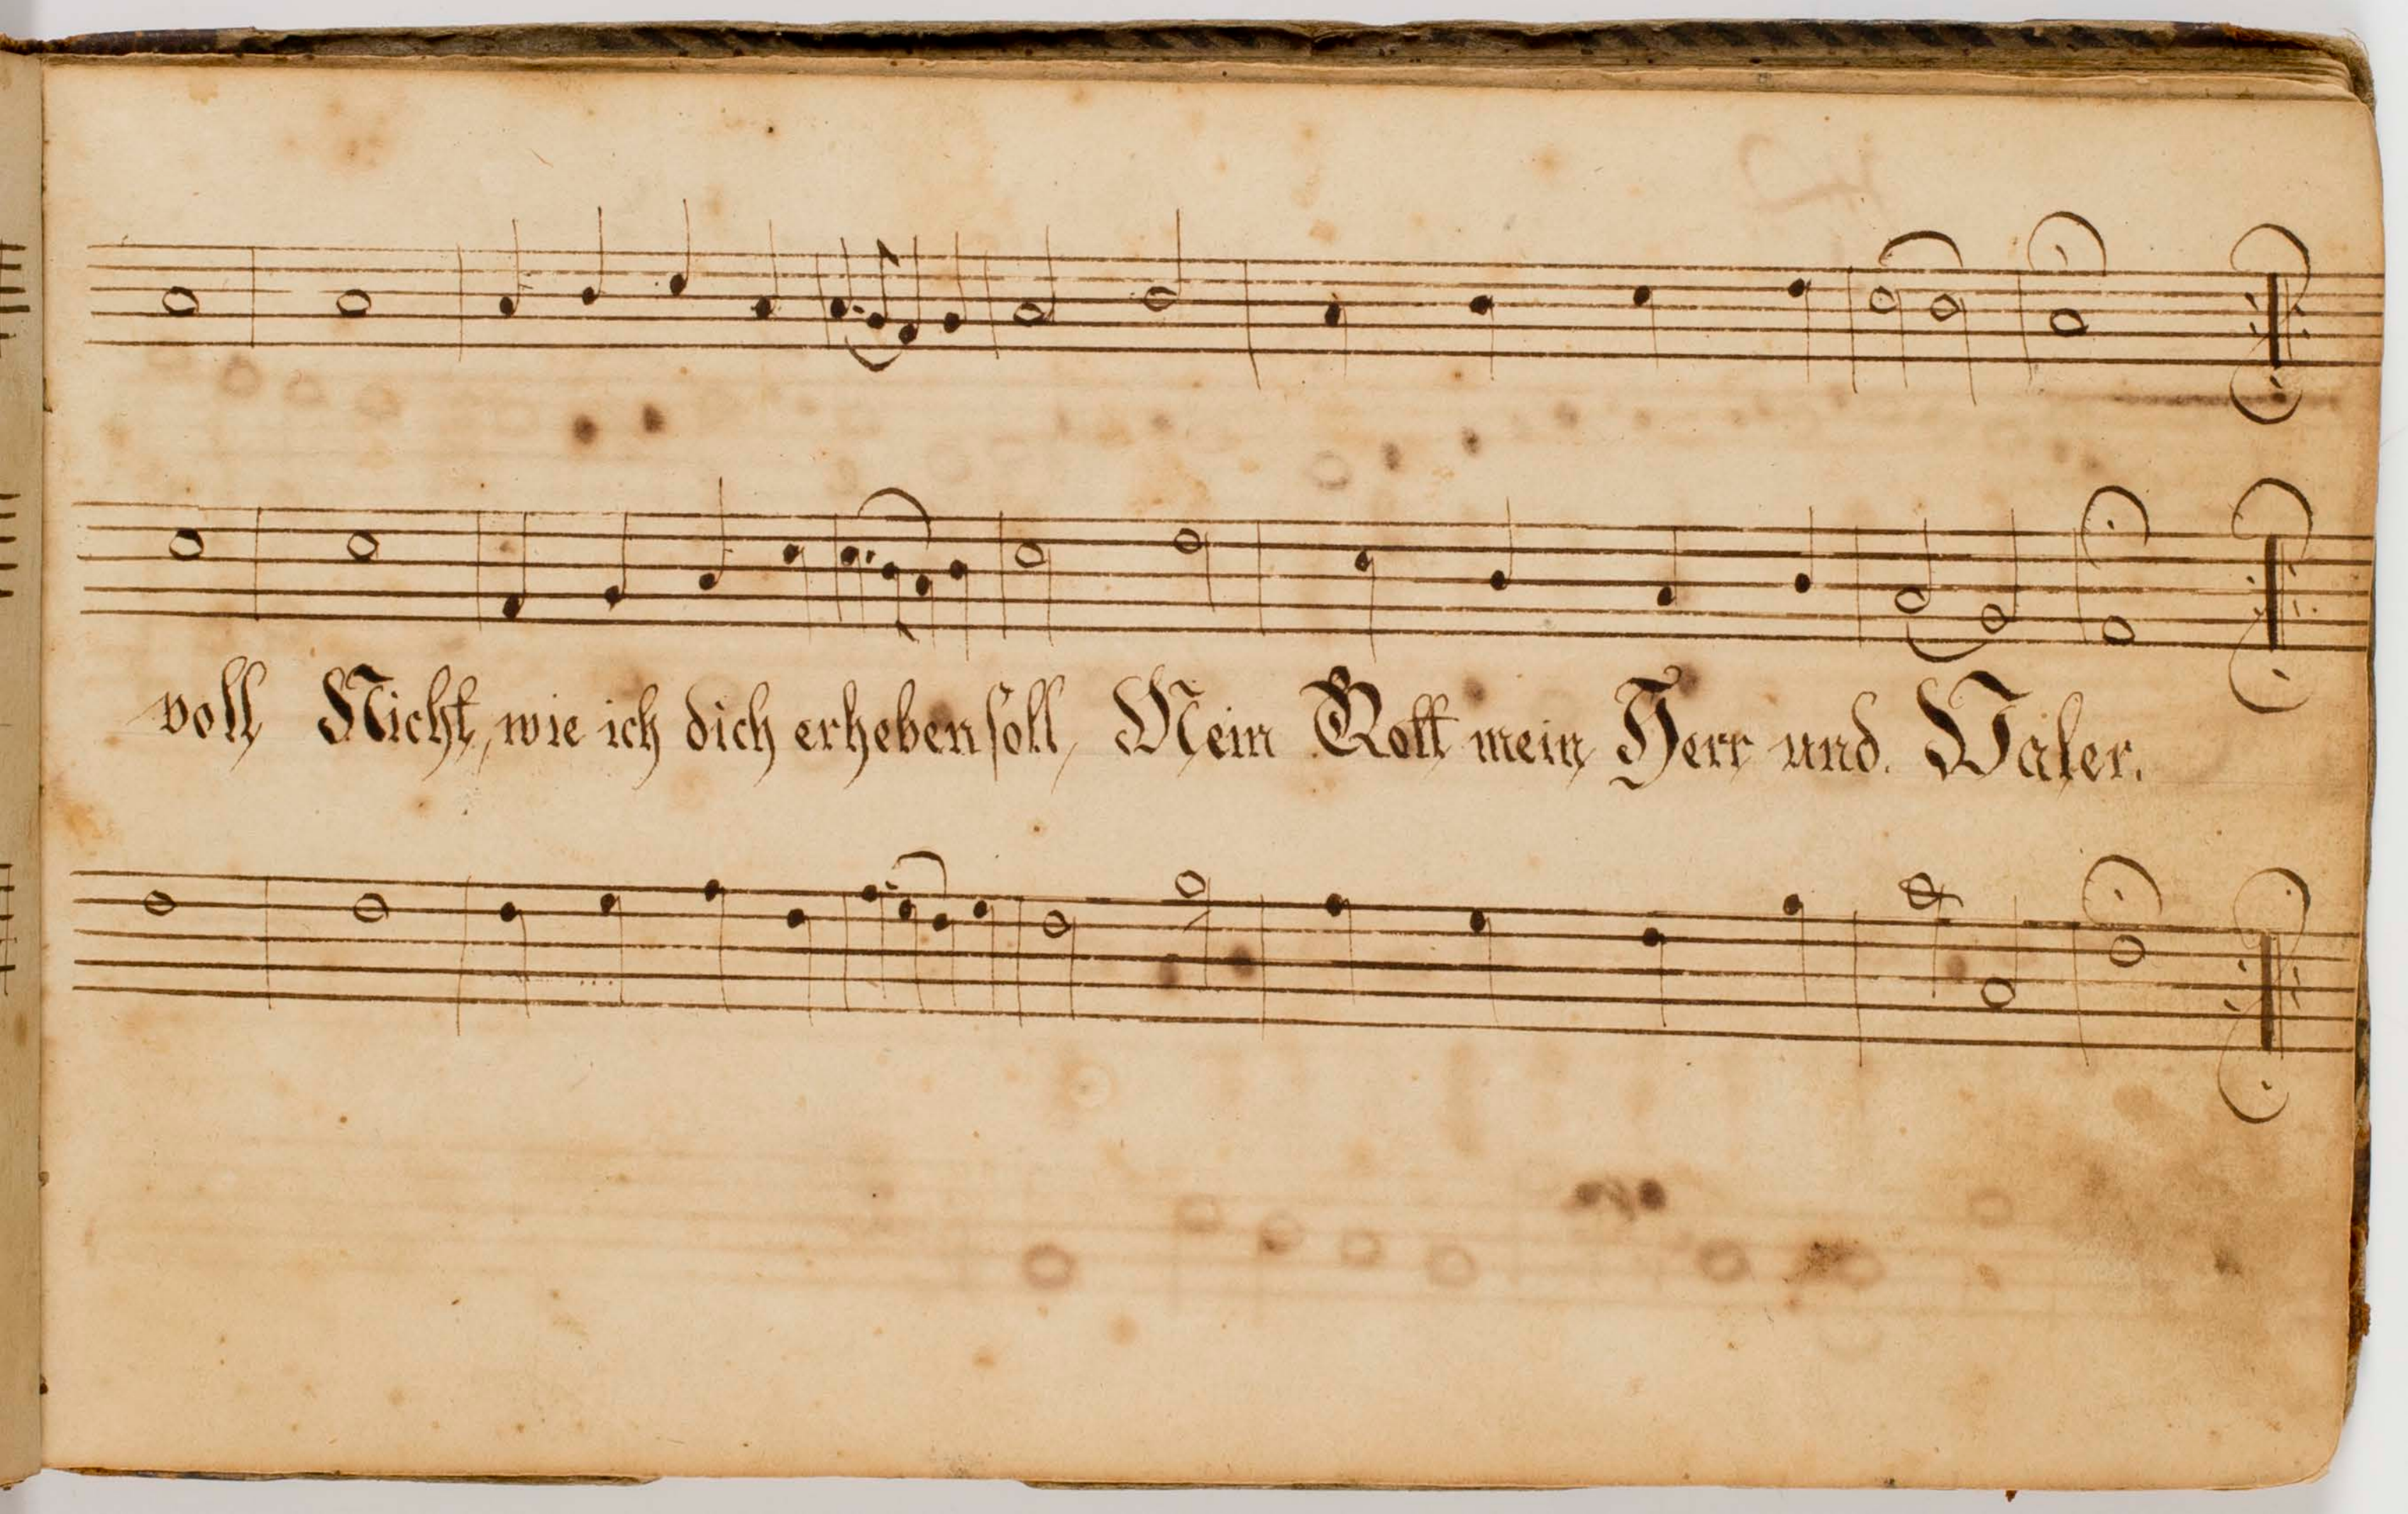 voll, Nicht, wie ich dich erheben soll, Mein Gott mein Herr und Vater.